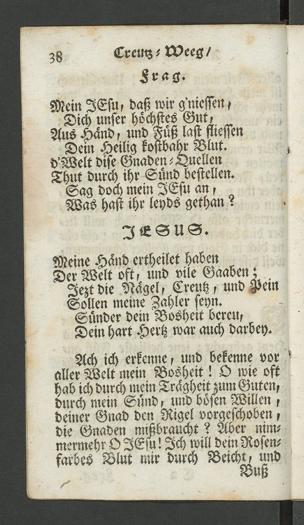 38 Creutz-Weeg/
Frag.
Mein JEsu, daß wir g'niessen,
Dich unser höchstes Gut,
Aus Händ, und Füß last fliessen
Dein Heilig kostbahr Blut.
d'Welt dise Gnaden-Quellen
Thut durch ihr Sünd bestellen.
Sag doch mein JEsu an,
Was hast ihr leyds gethan?
JESUS.
Meine Händ ertheilet haben
Der Welt oft, und vile Gaaben;
Jezt die Nägel, Creutz, und Pein
Sollen meine Zahler seyn.
Sünder dein Bosheit bereu,
Dein hart Hertz war auch darbey.
Ach ich erkenne, und bekenne vor
aller Welt mein Bosheit! O wie oft
hab ich durch mein Trägheit zum Guten,
durch mein Sünd, und bösen Willen,
deiner Gnad den Rigel vorgeschoben,
die Gnaden mißbraucht? Aber nim-
mermehr O JEsu! Ich will dein Rosen-
farbes Blut mir durch Beicht, und
Buß